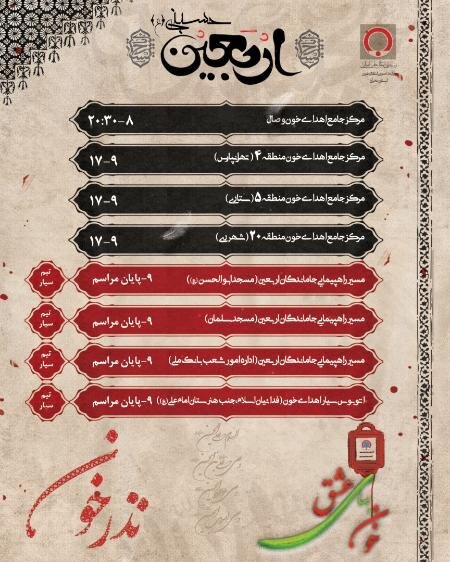 اربعین حسینی
مرکز جامع اهدای خون وصال
۸-۲۰:۳۰
مرکز جامع اهدای خون منطقه ۴ (تهرانپارس)
۹-۱۷
مرکز جامع اهدای خون منطقه ۵ (ستاری)
۹-۱۷
مرکز جامع اهدای خون منطقه ۲۰ (شهرری)
۹-۱۷
مسیر راهپیمایی جاماندگان اربعین (مسجد ابوالحسن (ع))
۹-پایان مراسم
تیم سیار
مسیر راهپیمایی جاماندگان اربعین (مسجد سلمان)
۹-پایان مراسم
تیم سیار
مسیر راهپیمایی جاماندگان اربعین (اداره امور شعب بانک ملی)
۹-پایان مراسم
تیم سیار
اتوبوس سیار اهدای خون (فدائیان اسلام، جنب هنرستان امام علی (ع))
۹-پایان مراسم
تیم سیار
نذر خون
خون بهای عشق